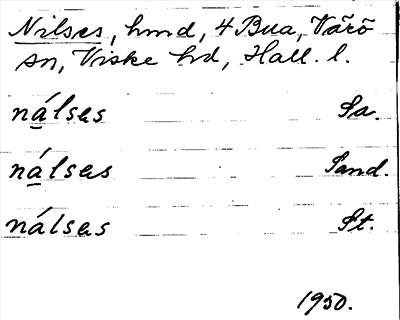 Nilses, hmd, 4 Bua, Värö
sn, Viske hd, Hall. l.
ná̱lses Sa.
ná̱lses Sand.
nálses St.
1950.